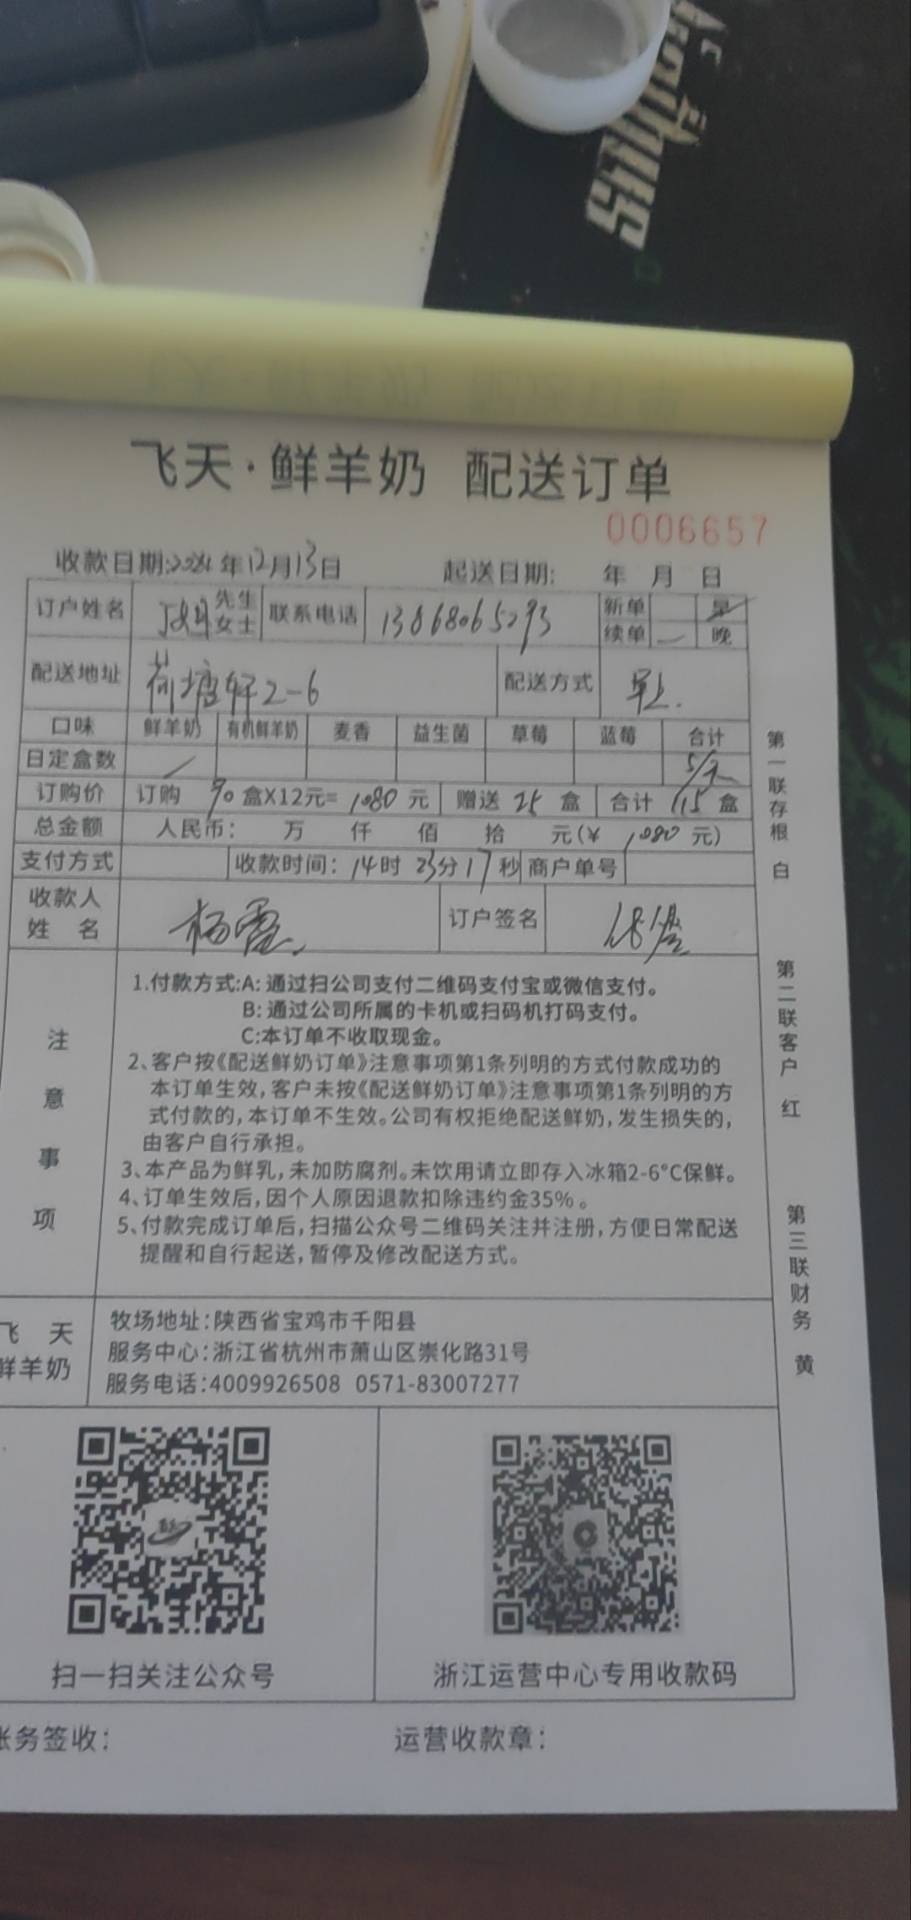 飞天·鲜羊奶 配送订单
0006657
收款日期: 年12月13日 起送日期: 年 月 日
订户姓名 先生 女士 联系电话 13868065293 新单 早
续单 晚
配送地址 荷塘轩2-6 配送方式
口味 鲜羊奶 有机鲜羊奶 麦香 益生菌 草莓 蓝莓 合计
日定盒数 5/天
订购价 订购 90 盒X12元= 1080 元 赠送 25 盒 合计 115 盒
总金额 人民币: 万 仟 佰 拾 元(¥ 1080 元)
支付方式 收款时间: 14时 23分17秒 商户单号
收款人
姓 名 杨霞 订户签名
注意事项
1.付款方式:A: 通过扫公司支付二维码支付宝或微信支付。
B: 通过公司所属的卡机或扫码机打码支付。
C:本订单不收取现金。
2、客户按《配送鲜奶订单》注意事项第1条列明的方式付款成功的
本订单生效,客户未按《配送鲜奶订单》注意事项第1条列明的方
式付款的,本订单不生效。公司有权拒绝配送鲜奶,发生损失的,
由客户自行承担。
3、本产品为鲜乳,未加防腐剂。未饮用请立即存入冰箱2-6°C保鲜。
4、订单生效后,因个人原因退款扣除违约金35%。
5、付款完成订单后,扫描公众号二维码关注并注册,方便日常配送
提醒和自行起送,暂停及修改配送方式。
飞 天
鲜羊奶
牧场地址:陕西省宝鸡市千阳县
服务中心:浙江省杭州市萧山区崇化路31号
服务电话:4009926508 0571-83007277
扫一扫关注公众号
浙江运营中心专用收款码
账务签收:
运营收款章:
第一联存根 白
第二联客户 红
第三联财务 黄